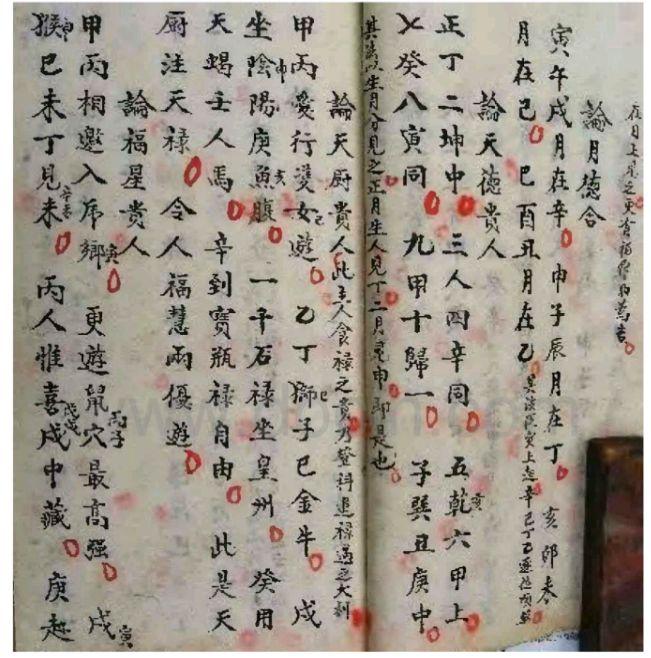 在日上見之更貴福祿均吉
論月德合
寅午戌月在辛 申子辰月在丁 亥卯未
月在己 巳酉丑月在乙 其法從寅上起辛己丁乙逐位順
論天德貴人
正丁二坤中 三人四辛同 五乾六甲上
乂癸八寅同 九甲十歸一 子巽丑庚中
其法以生月分見之正月生人見丁二月見申即是也
論天厨貴人 此主人食祿之貴乃登科進祿遇之大利
甲丙愛行雙女遊 乙丁獅子已金牛 戊
坐陰陽庚魚腹 一千石祿坐皇州 癸用
天蝎壬人馬 辛到寶瓶祿自由 此是天
厨注天祿 令人福慧兩優遊
論福星貴人
甲丙相邀入虎鄉 更遊鼠穴最高强 戊
猴已未丁見未 丙人惟喜戌中藏 庚赴